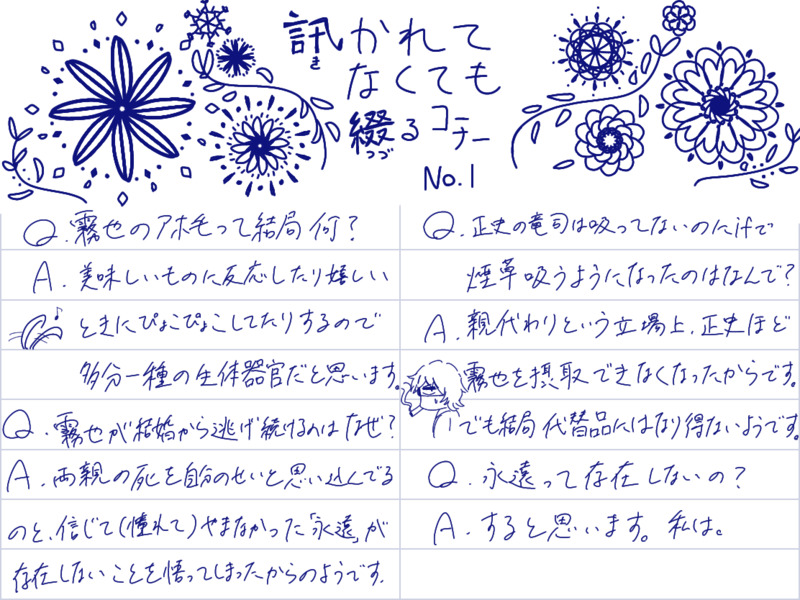 訊かれて
き
なくても
綴るコーナー
つづ
No.1
Q.霧也のアホ毛って結局何?
A.美味しいものに反応したり嬉しい
ときにぴょこぴょこしてたりするので
多分一種の生体器官だと思います。
Q.霧也が結婚から逃げ続けるのはなぜ?
A.両親の死を自分のせいと思い込んでる
のと、信じて(憧れて)やまなかった「永遠」が
存在しないことを悟ってしまったからのようです.
Q.正史の竜司は吸ってないのにifで
煙草吸うようになったのはなんで?
A.親代わりという立場上、正史ほど
霧也を摂取できなくなったからです。
でも結局代替品にはなり得ないようです。
Q.永遠って存在しないの?
A.すると思います。私は。